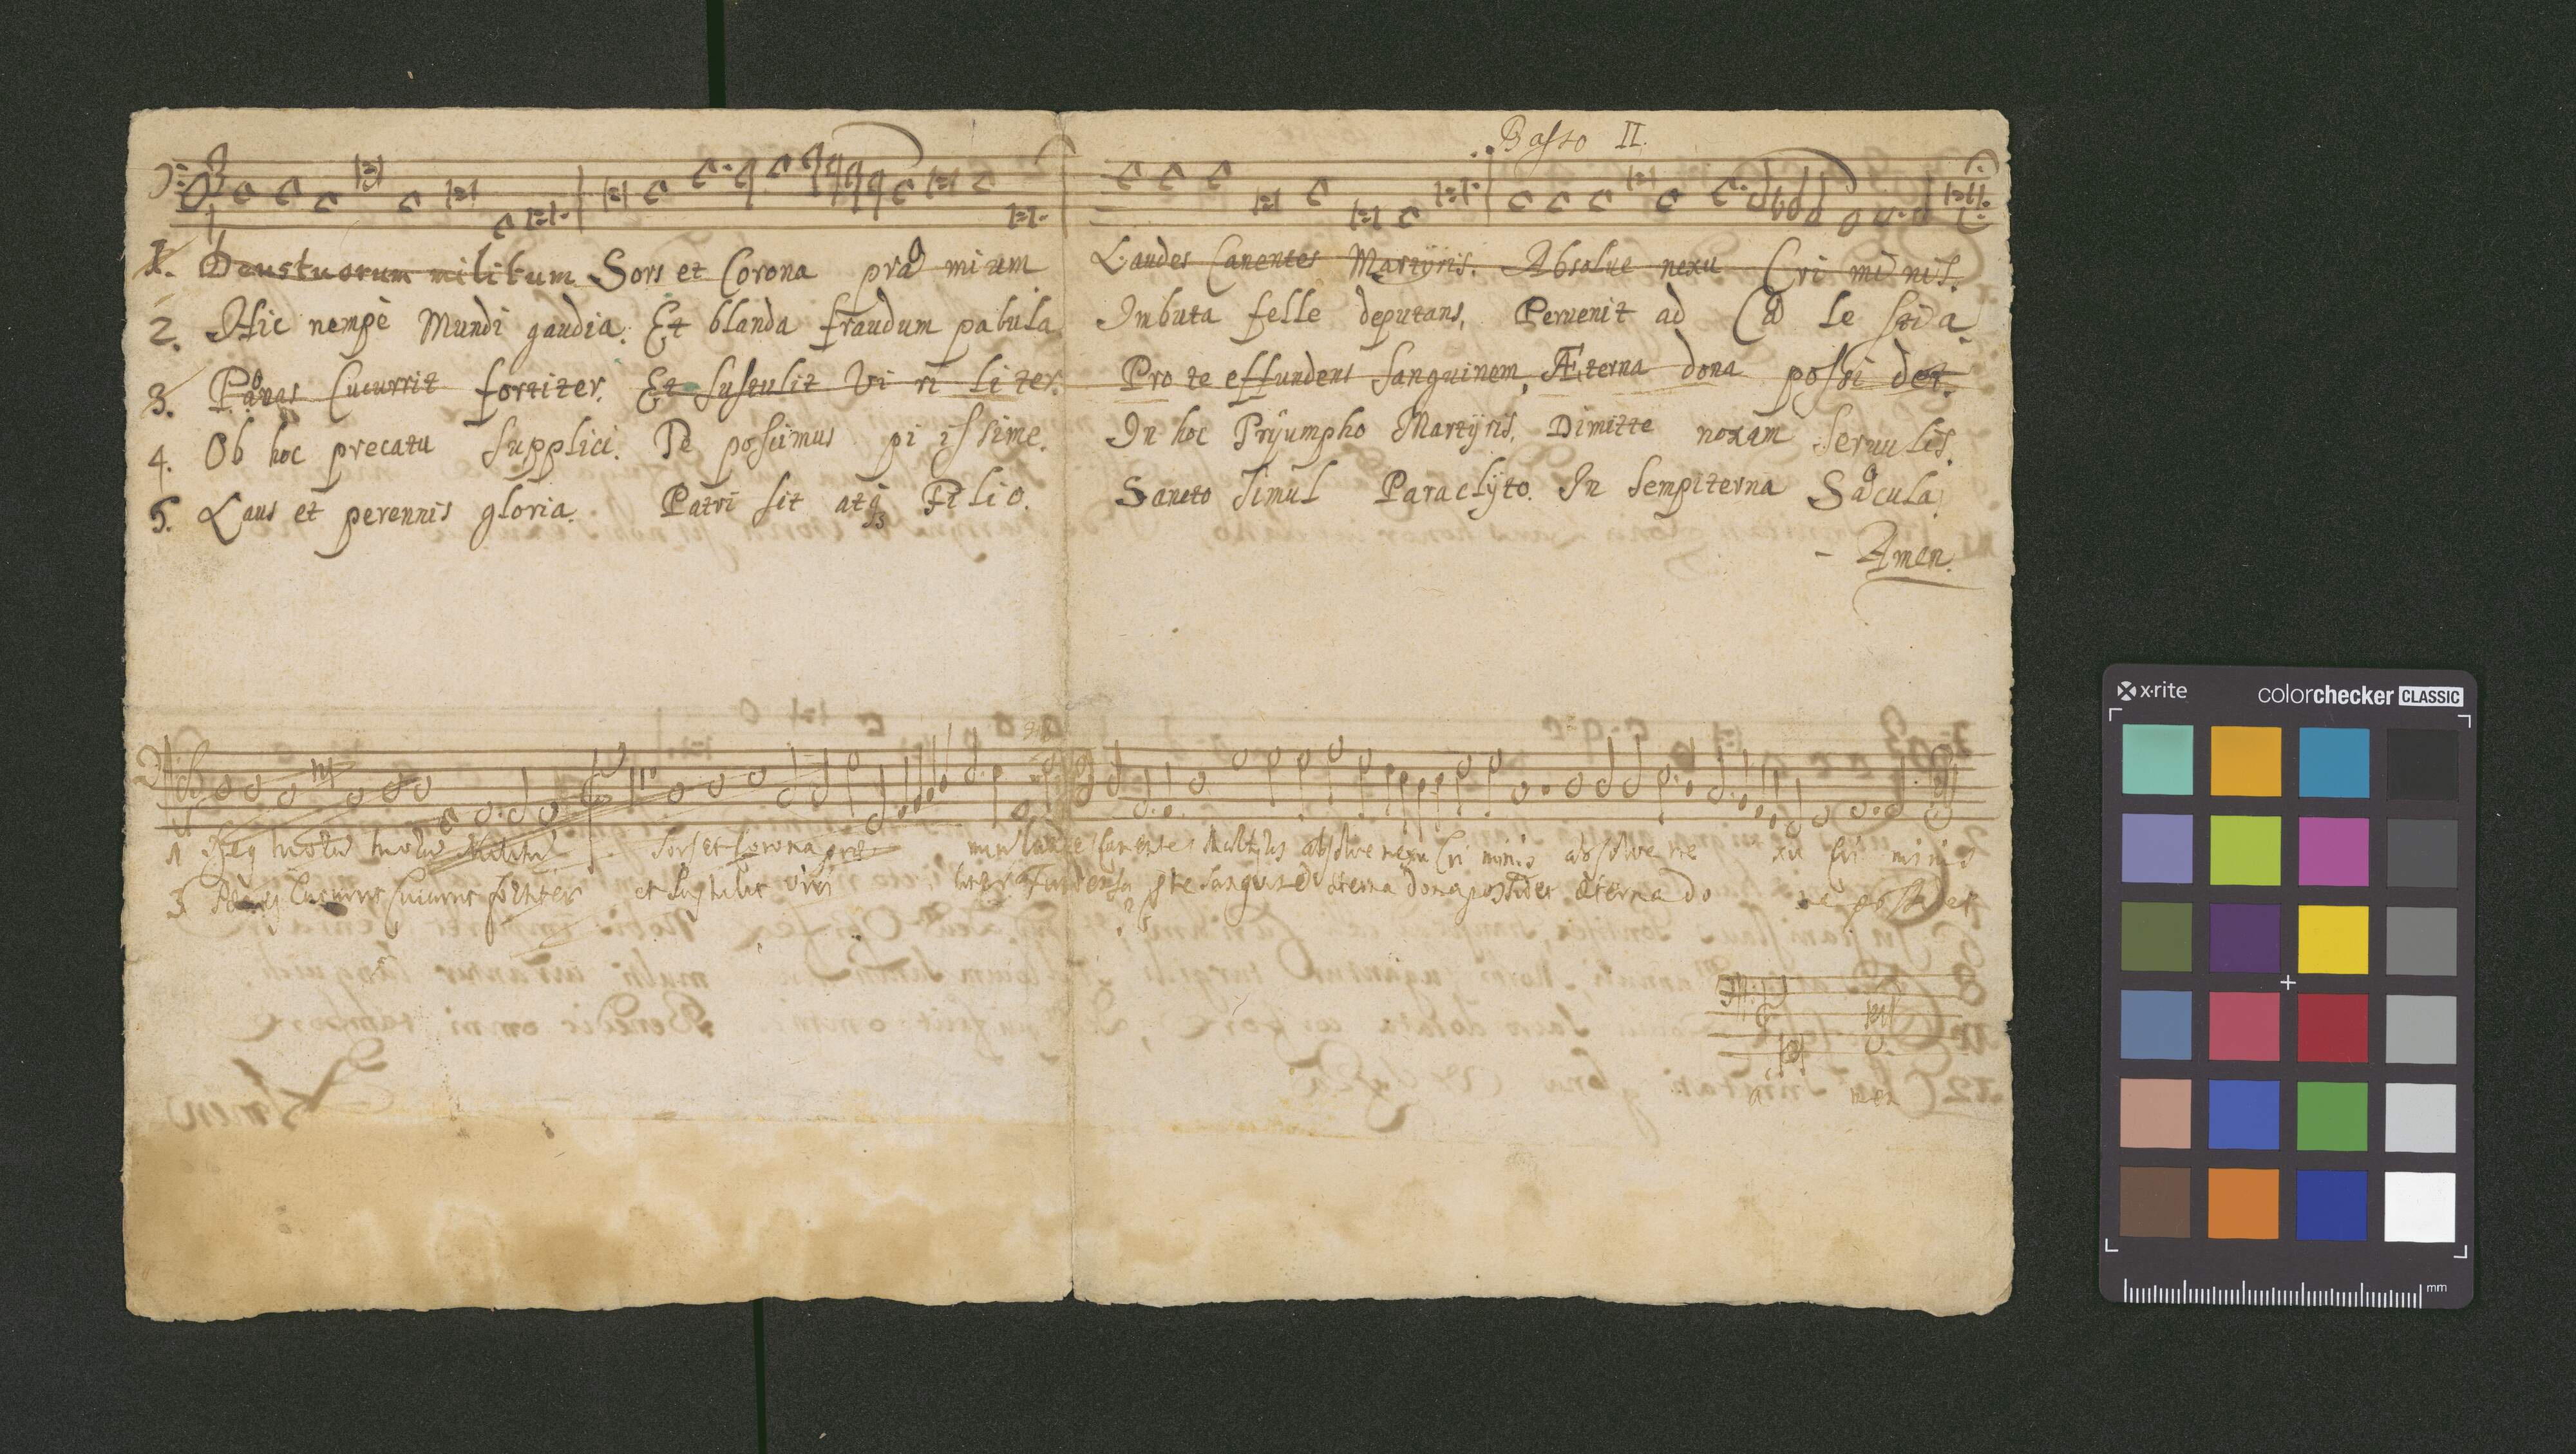 Basso II.
1. Deus tuorum militum Sors et Corona præ mium Laudes Canentes Martÿris. Absolue nexu Cri mi nis.
2. Hic nempè Mundi gaudia. Et blanda fraudum pabula Imbuta felle deputans, Peruenit ad Cæ le stia.
3. Pœnas Cucurrit fortiter. Et Sustulit Vi ri li ter. Pro te effundens Sanguinem, Æterna dona possi det.
4. Ob hoc precatu Supplici. Te poscimus pi issime. In hoc Trÿumpho Martÿris, Dimitte noxam Seruulis.
5. Laus et perennis gloria. Patri sit atq3 Filio. Sancto Simul Paraclÿto. In Sempiterna Sæcula.
- Amen.
1 Sors et Corona præ absolve nexu Cri minis absolve ne xu Cri minis
3 Cucurrit Cucurrit fortiter et æterna dona possidet æterna do na possidet
a men
x-rite colorchecker CLASSIC
mm